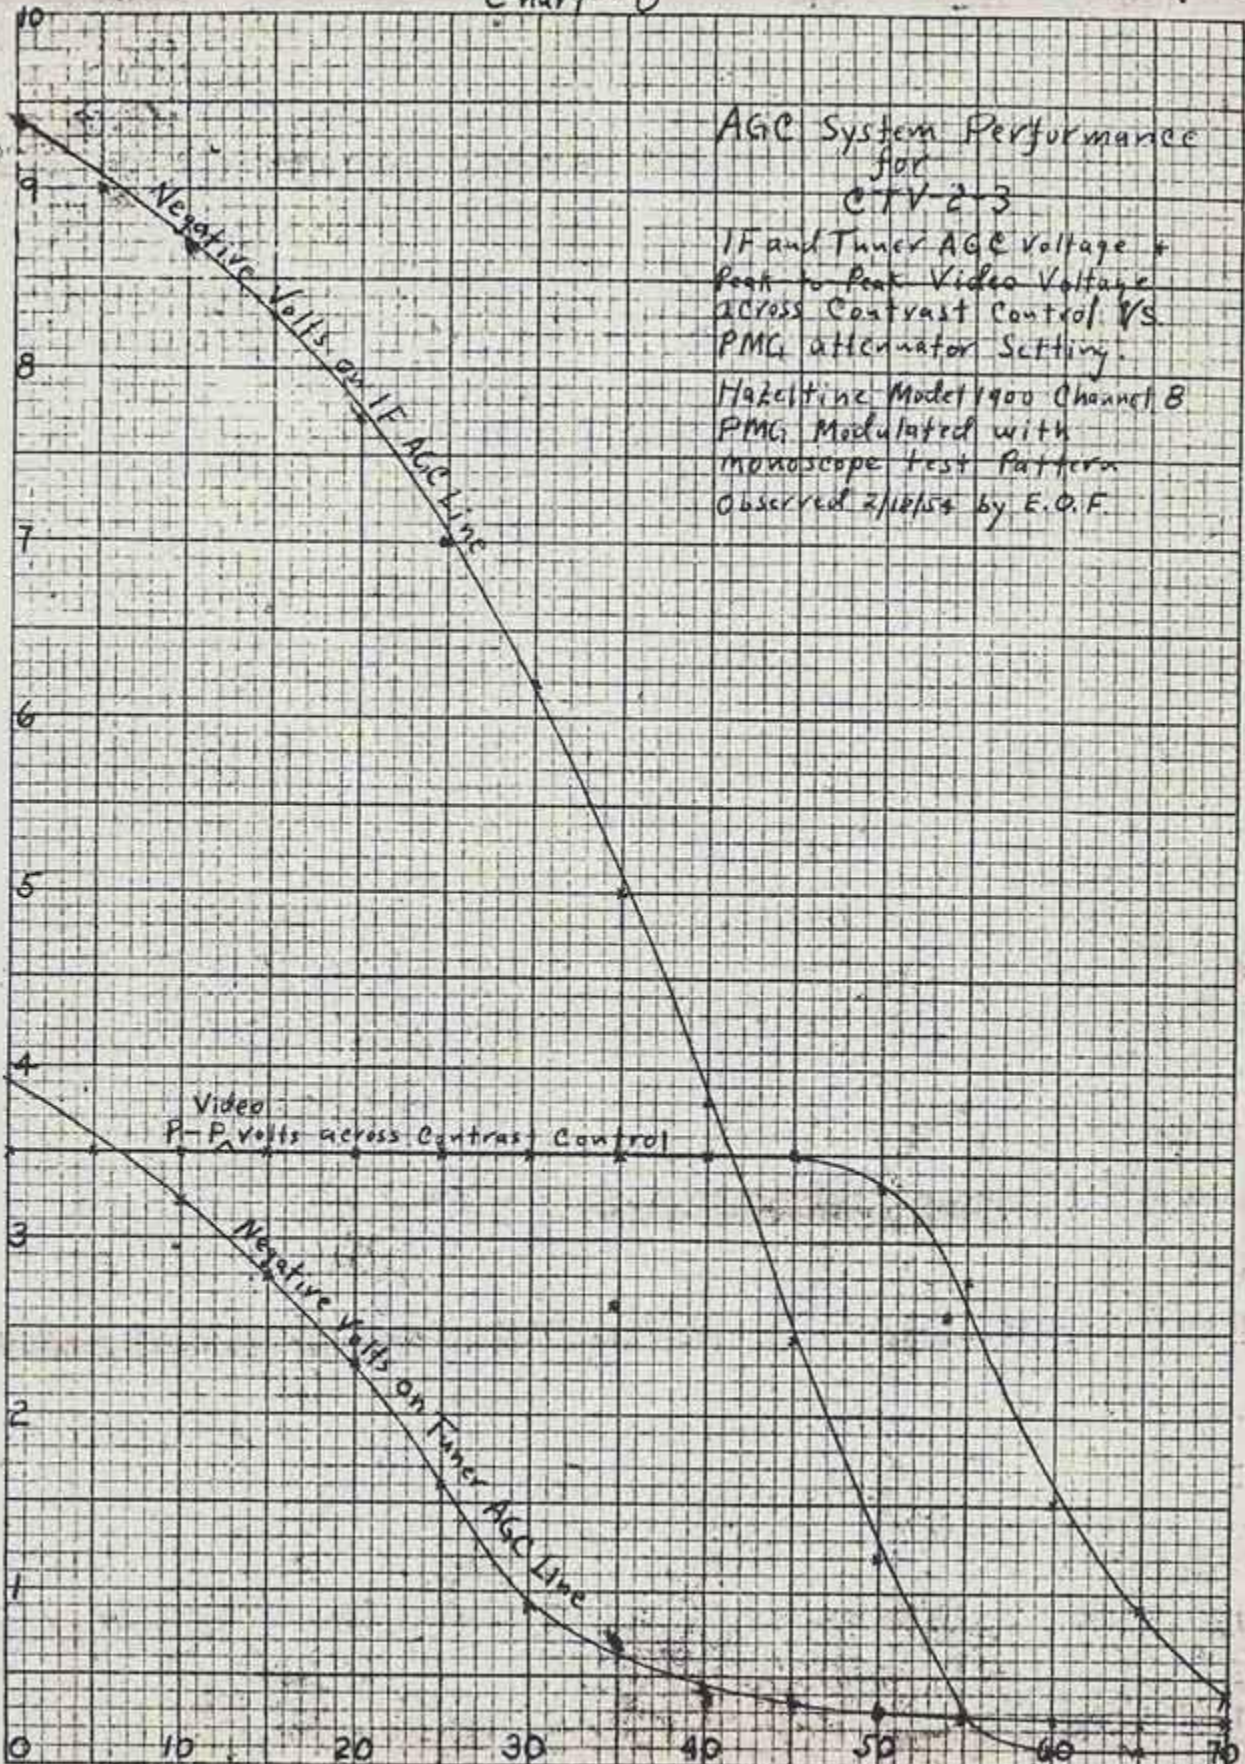 Chart
10
AGC System Performance
for
CTV-2-3
IF and Tuner AGC Voltage +
Peak to Peak Video Voltage
across Contrast Control VS.
PMG attenuator Setting.
Hazeltine Model 1900 Channel 8
PMG Modulated with
monoscope test Pattern
Observed by E.O.F.
9
Negative Volts on IF AGC Line
8
7
6
5
4
Video
P-P ^ volts across Contrast Control
3
Negative Volts on Tuner AGC Line
2
1
0 10 20 30 40 50 60 70